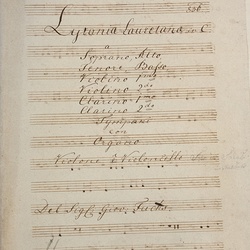 556
Lytania Lauretana in C
a
Soprano, Alto
Tenore, Basso
Violino 1mo
Violino 2do
Clarino 1mo
Clarino 2do
Tympano
con
Organo
Violone, è Violoncello
Del Sigl: Giov. Fuchs.